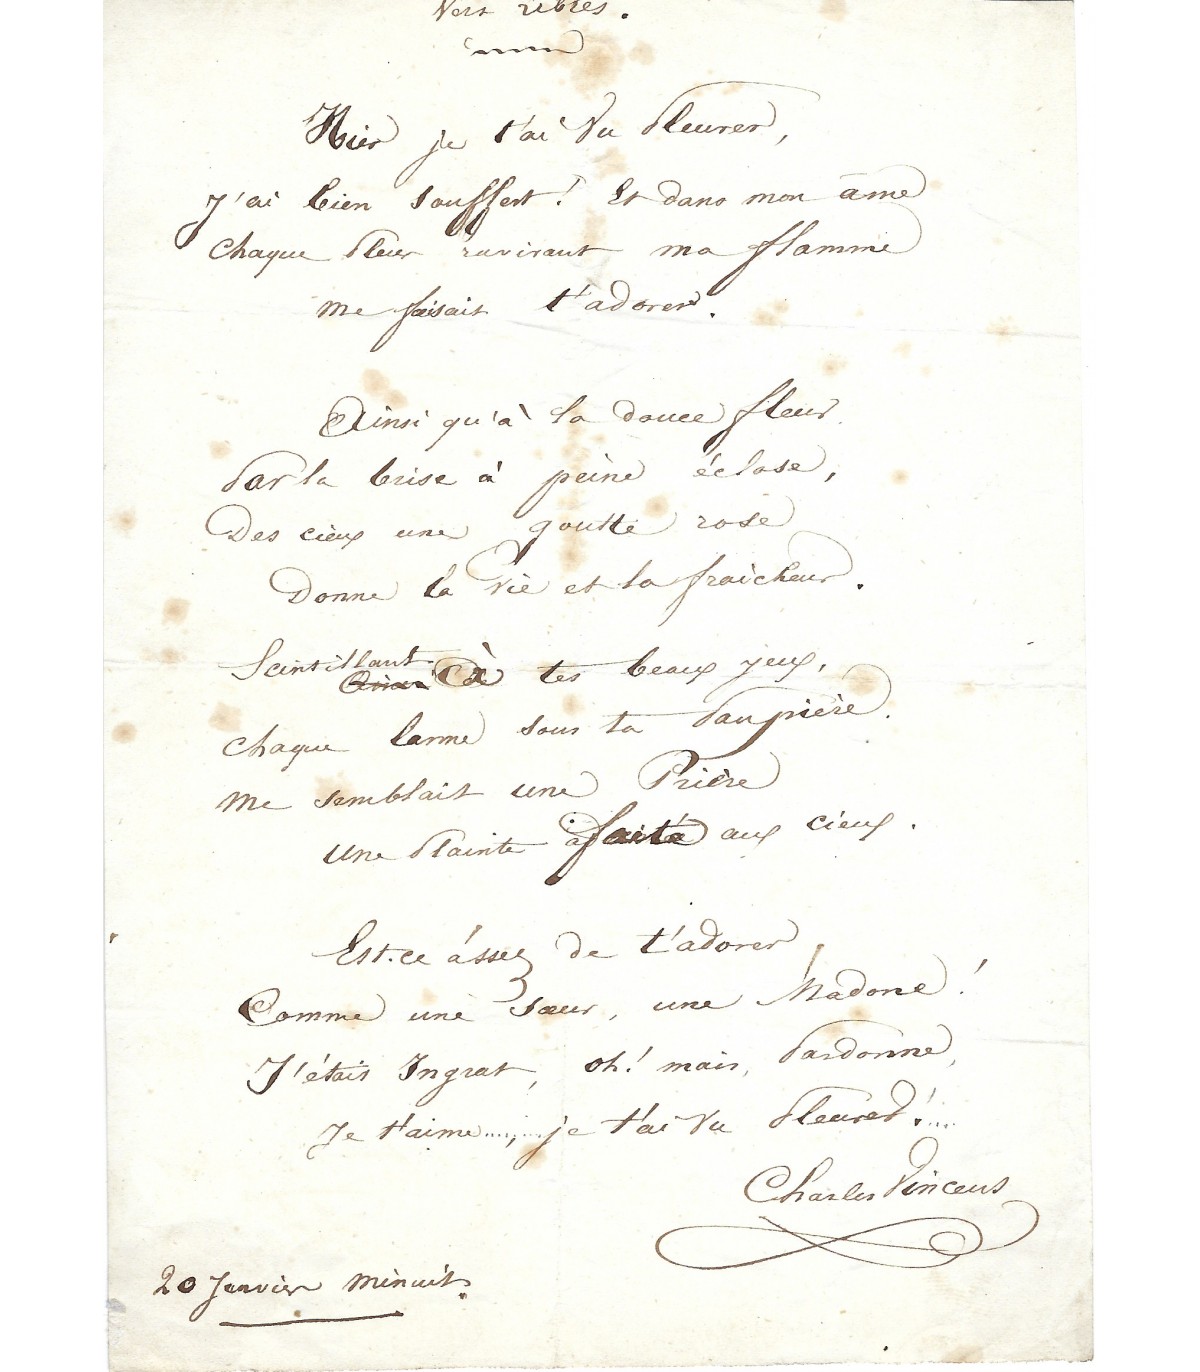 Vers libres.
Hier je t'ai Vu Pleurer,
J'ai bien souffert! Et dans mon âme
Chaque Pleur ravivant ma flamme
Me faisait t'adorer.
Ainsi qu'à la douce fleur
Par la brise à peine éclose,
Des cieux une goutte rose
Donne la Vie et la fraicheur.
Scintillant
à tes beaux yeux,
Chaque larme sous ta Paupière.
Me semblait une Prière
Une Plainte faite aux cieux.
Est-ce assez de t'adorer
Comme une sœur, une Madone!
J'étais Ingrat, oh! mais, Pardonne,
Je t'aime......, ...je t'ai Vu Pleurer!....
Charles Vincent
20 Janvier Minuit.